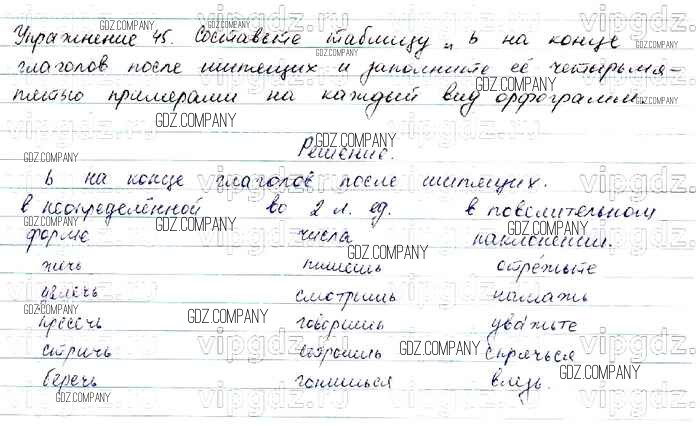 Упражнение 45. Составьте таблицу „ ь на конце
глаголов после шипящих и заполните её четырьмя-
пятью примерами на каждый вид орфограммы.
Решение.
ь на конце глаголов после шипящих.
в неопределённой во 2 л. ед. в повелительном
форме числа наклонении.
жечь пишешь отрежьте
увлечь смотришь намажь
пресечь говоришь уважьте
стричь строишь спрячься
беречь гонишься
GDZ.COMPANY
vipgdz.ru